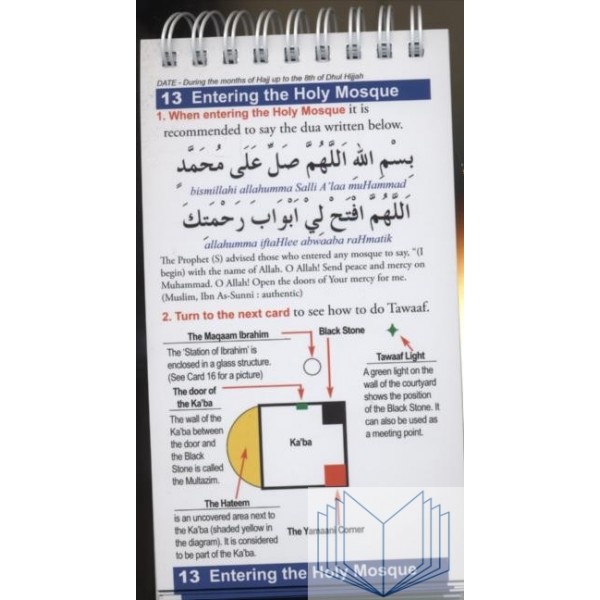 DATE - During the months of Hajj up to the 8th of Dhul Hijjah
13 Entering the Holy Mosque
1. When entering the Holy Mosque it is
recommended to say the dua written below.
بِسْمِ اللهِ اَللّٰهُمَّ صَلِّ عَلَى مُحَمَّدٍ
bismillahi allahumma Salli A'laa muHammad
اَللّٰهُمَّ افْتَحْ لِيْ اَبْوَابَ رَحْمَتِكَ
allahumma iftaHlee abwaaba raHmatik
The Prophet (S) advised those who entered any mosque to say, "(I
begin) with the name of Allah. O Allah! Send peace and mercy on
Muhammad. O Allah! Open the doors of Your mercy for me.
(Muslim, Ibn As-Sunni : authentic)
2. Turn to the next card to see how to do Tawaaf.
The Maqaam Ibrahim
The 'Station of Ibrahim' is
enclosed in a glass structure.
(See Card 16 for a picture)
Black Stone
Tawaaf Light
A green light on the
wall of the courtyard
shows the position
of the Black Stone. It
can also be used as
a meeting point.
The door of
the Ka'ba
The wall of the
Ka'ba between
the door and
the Black
Stone is called
the Multazim.
Ka'ba
The Hateem
is an uncovered area next to
the Ka'ba (shaded yellow in
the diagram). It is considered
to be part of the Ka'ba.
The Yamaani Corner
13 Entering the Holy Mosque